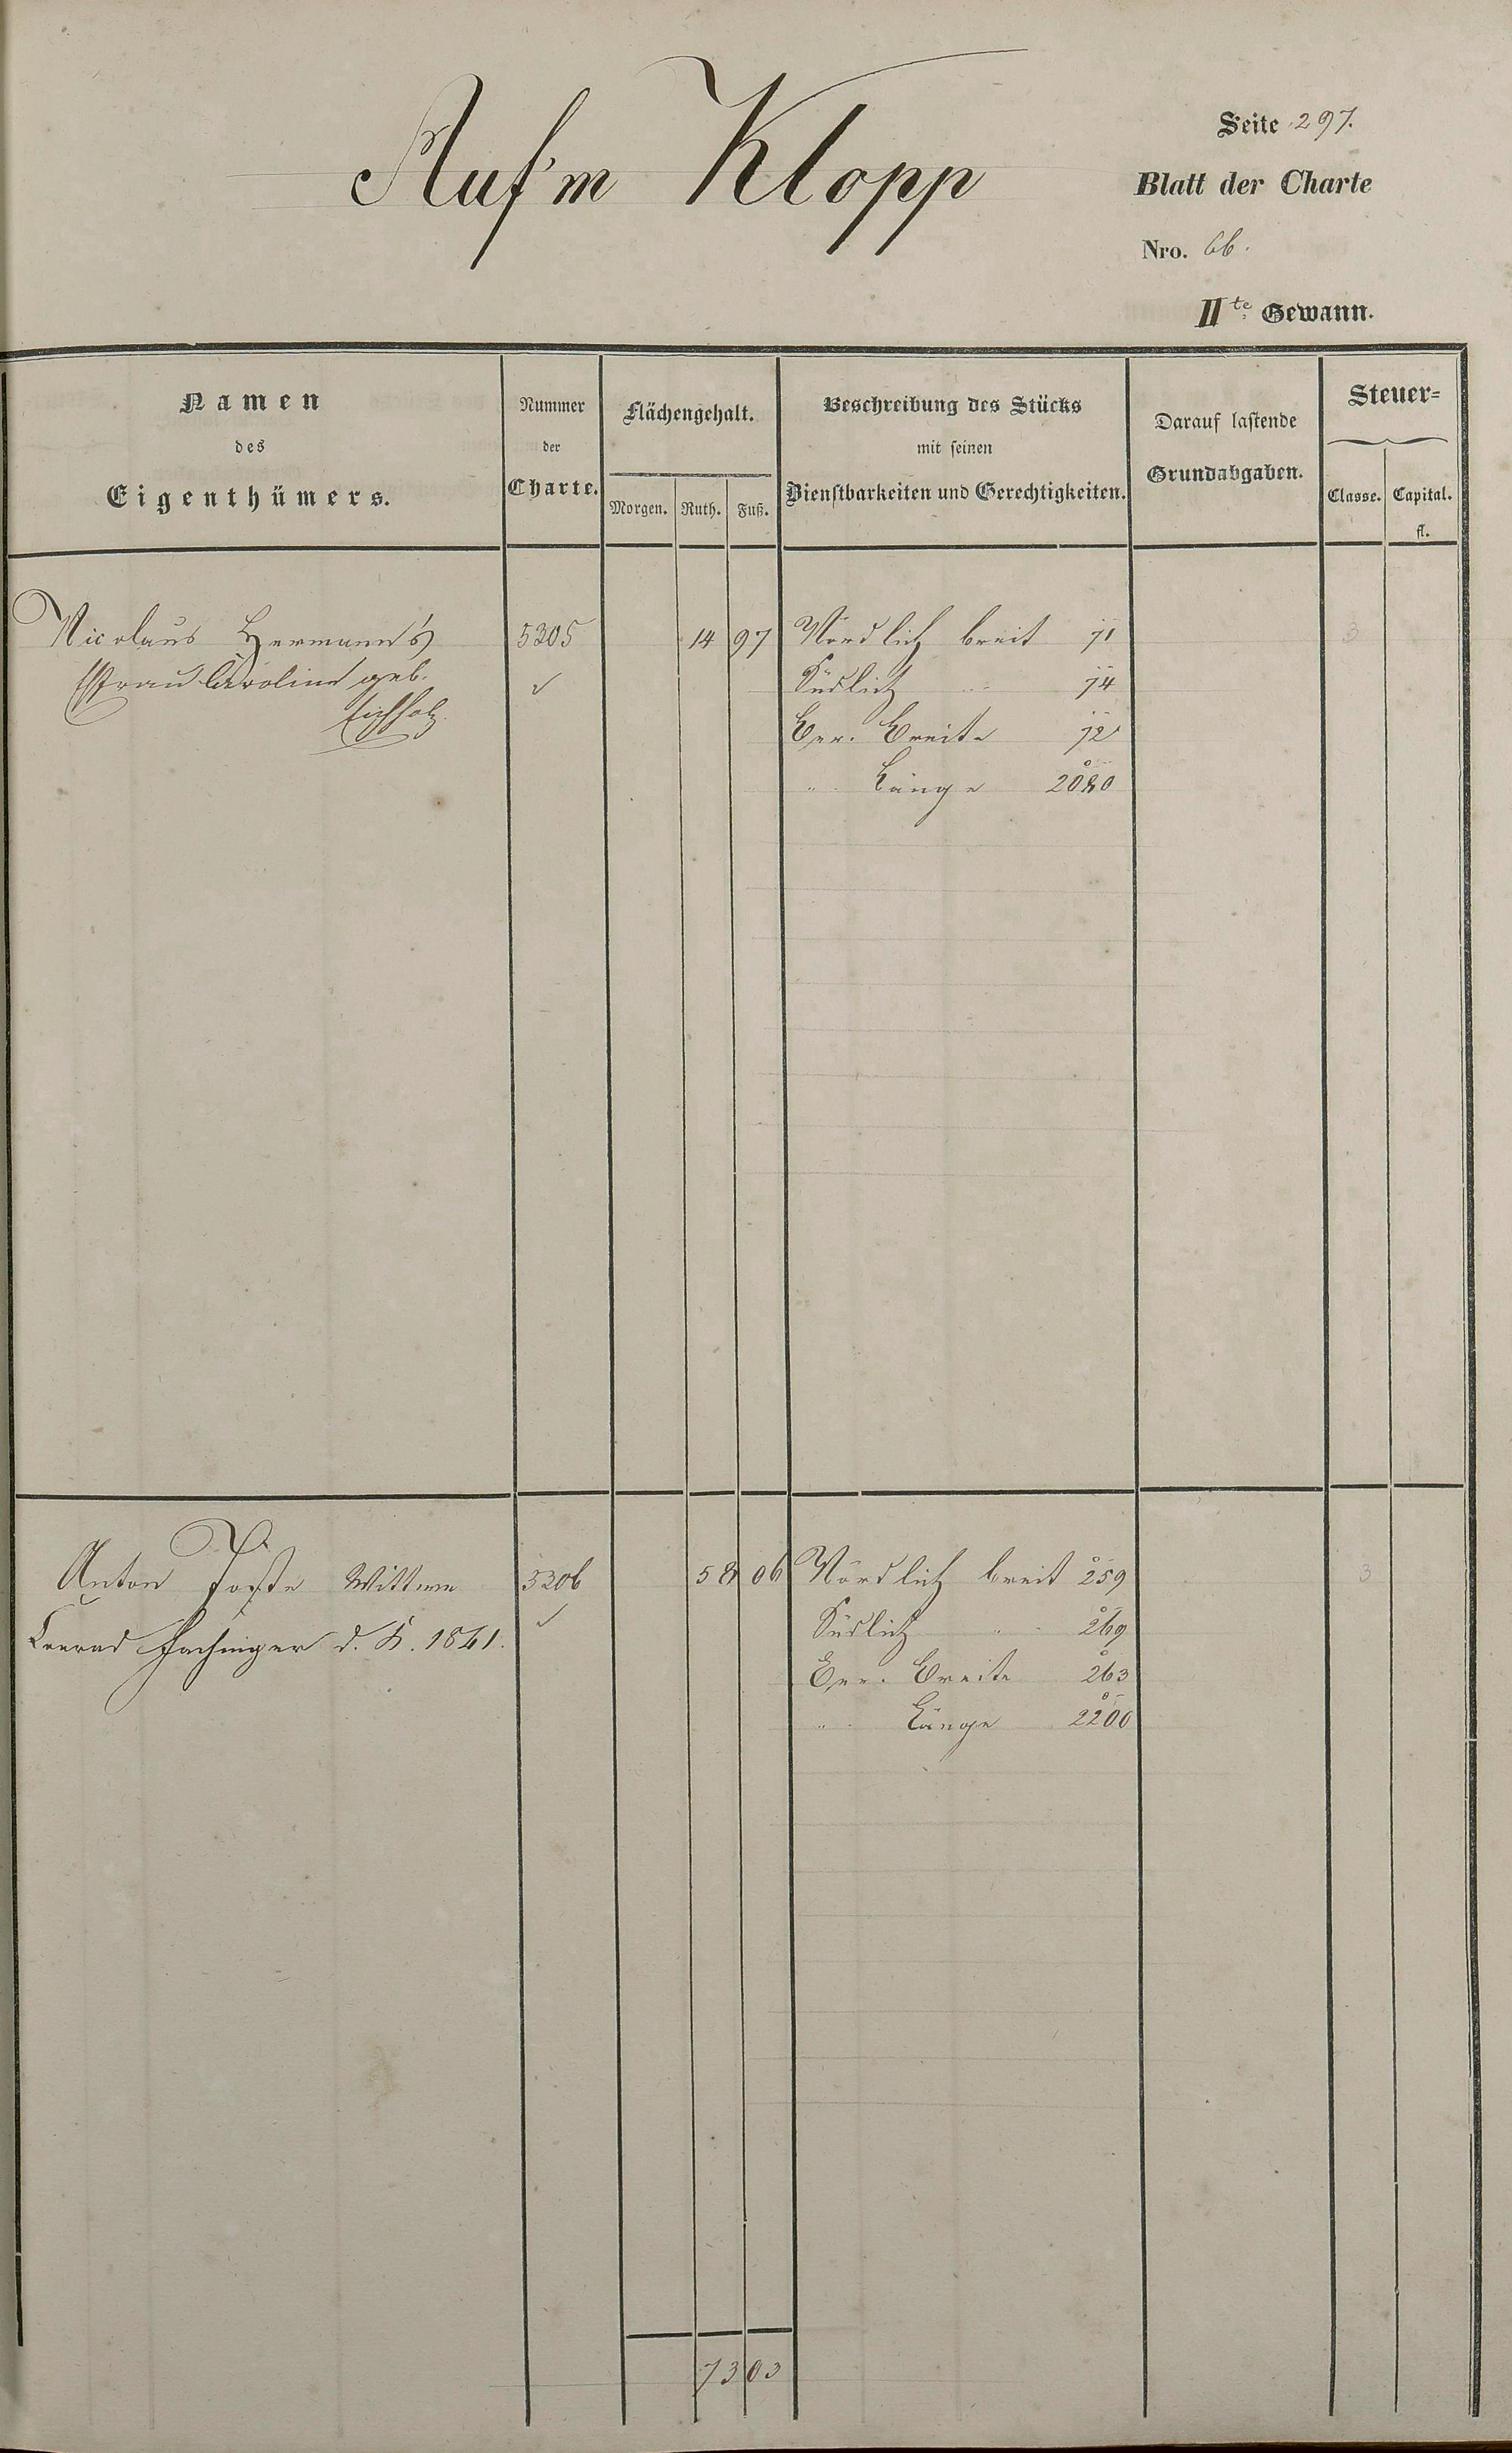 Auf'm Klopp
Seite 297.
Blatt der Charte
Nro. 66.
IIte Gewann.
Namen
des
Eigenthümers.
Nummer
der
Charte.
Flächengehalt.
Morgen. Ruth. Fuß.
Beschreibung des Stücks
mit seinen
Dienstbarkeiten und Gerechtigkeiten.
Darauf lastende
Grundabgaben.
Steuer-
Classe. Capital.
fl.
Nicolaus Hermann's 5205 14 97 Nördlich breit 71 3
Frau Caroline geb. ✓ Südlich " 74
Eichholz Ger. Breite 72
" Länge 2080
Anton Wittwe 5206 58 06 Nördlich breit 259 3
Conrad Fachinger d. K. 1841. ✓ Südlich " 269
Ger. Breite 263
" Länge 2200
73 03